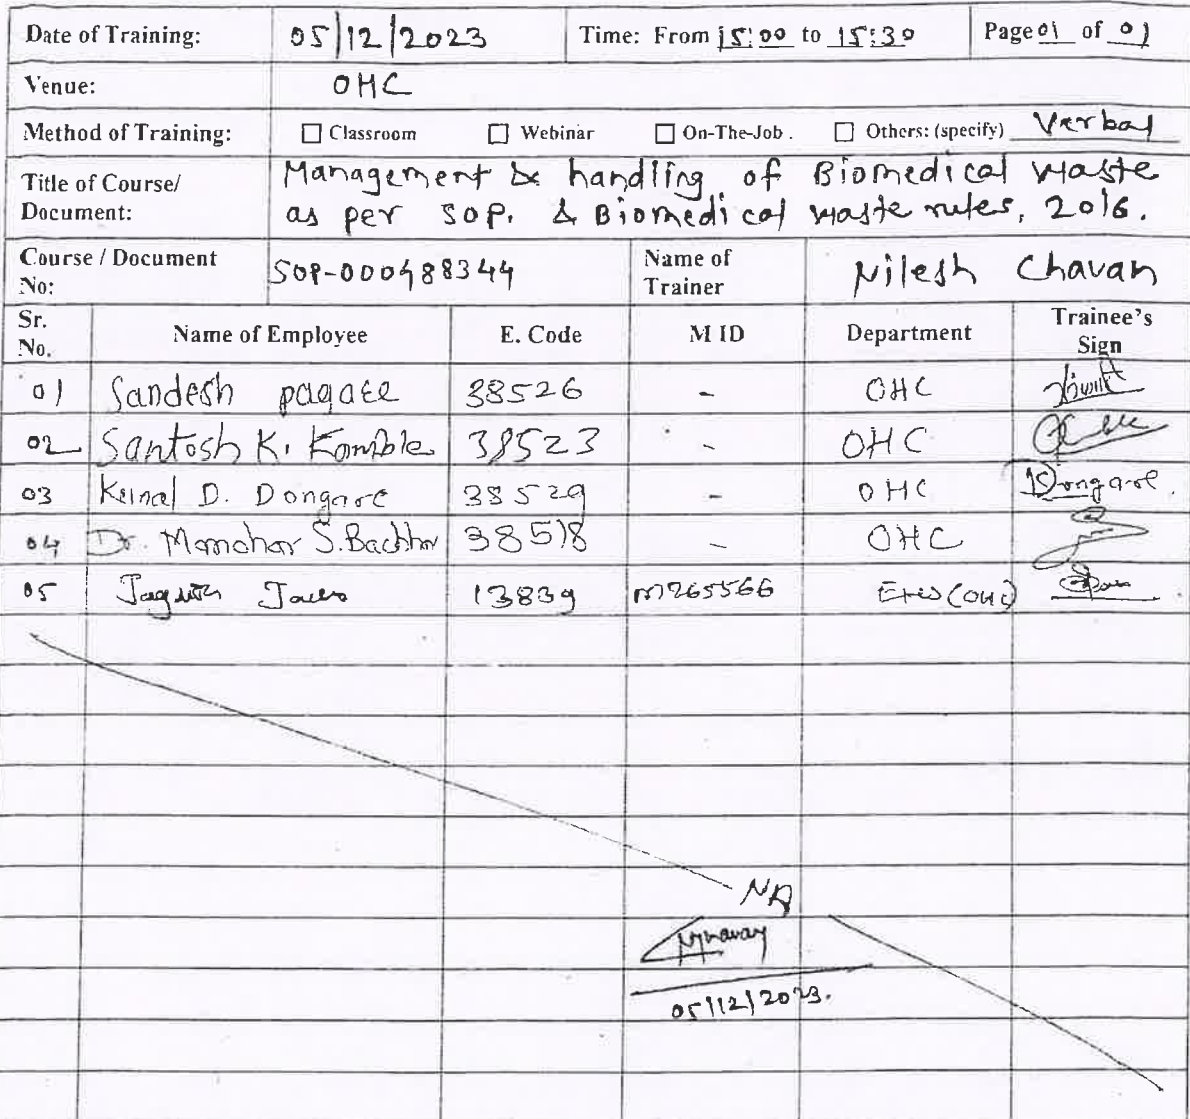 Date of Training: 05/12/2023 Time: From 15:00 to 15:30 Page 01 of 01
Venue: OHC
Method of Training: ☐ Classroom ☐ Webinar ☐ On-The-Job . ☐ Others: (specify) Verbal
Title of Course/ Management & handling of Biomedical Waste
Document: as per SOP. & Biomedical Waste rules, 2016.
Course / Document No: SOP-000488344 Name of Trainer Nilesh Chavan
Sr. No. Name of Employee E. Code M ID Department Trainee's Sign
01 Sandesh pagare 38526 - OHC
02 Santosh K. Kamble 38523 - OHC
03 D. Dongare 38529 - OHC Dongare
04 Dr. Manohar S. 38518 - OHC
05 13839 M265566 EHS (OHC)
NA
05/12/2023.